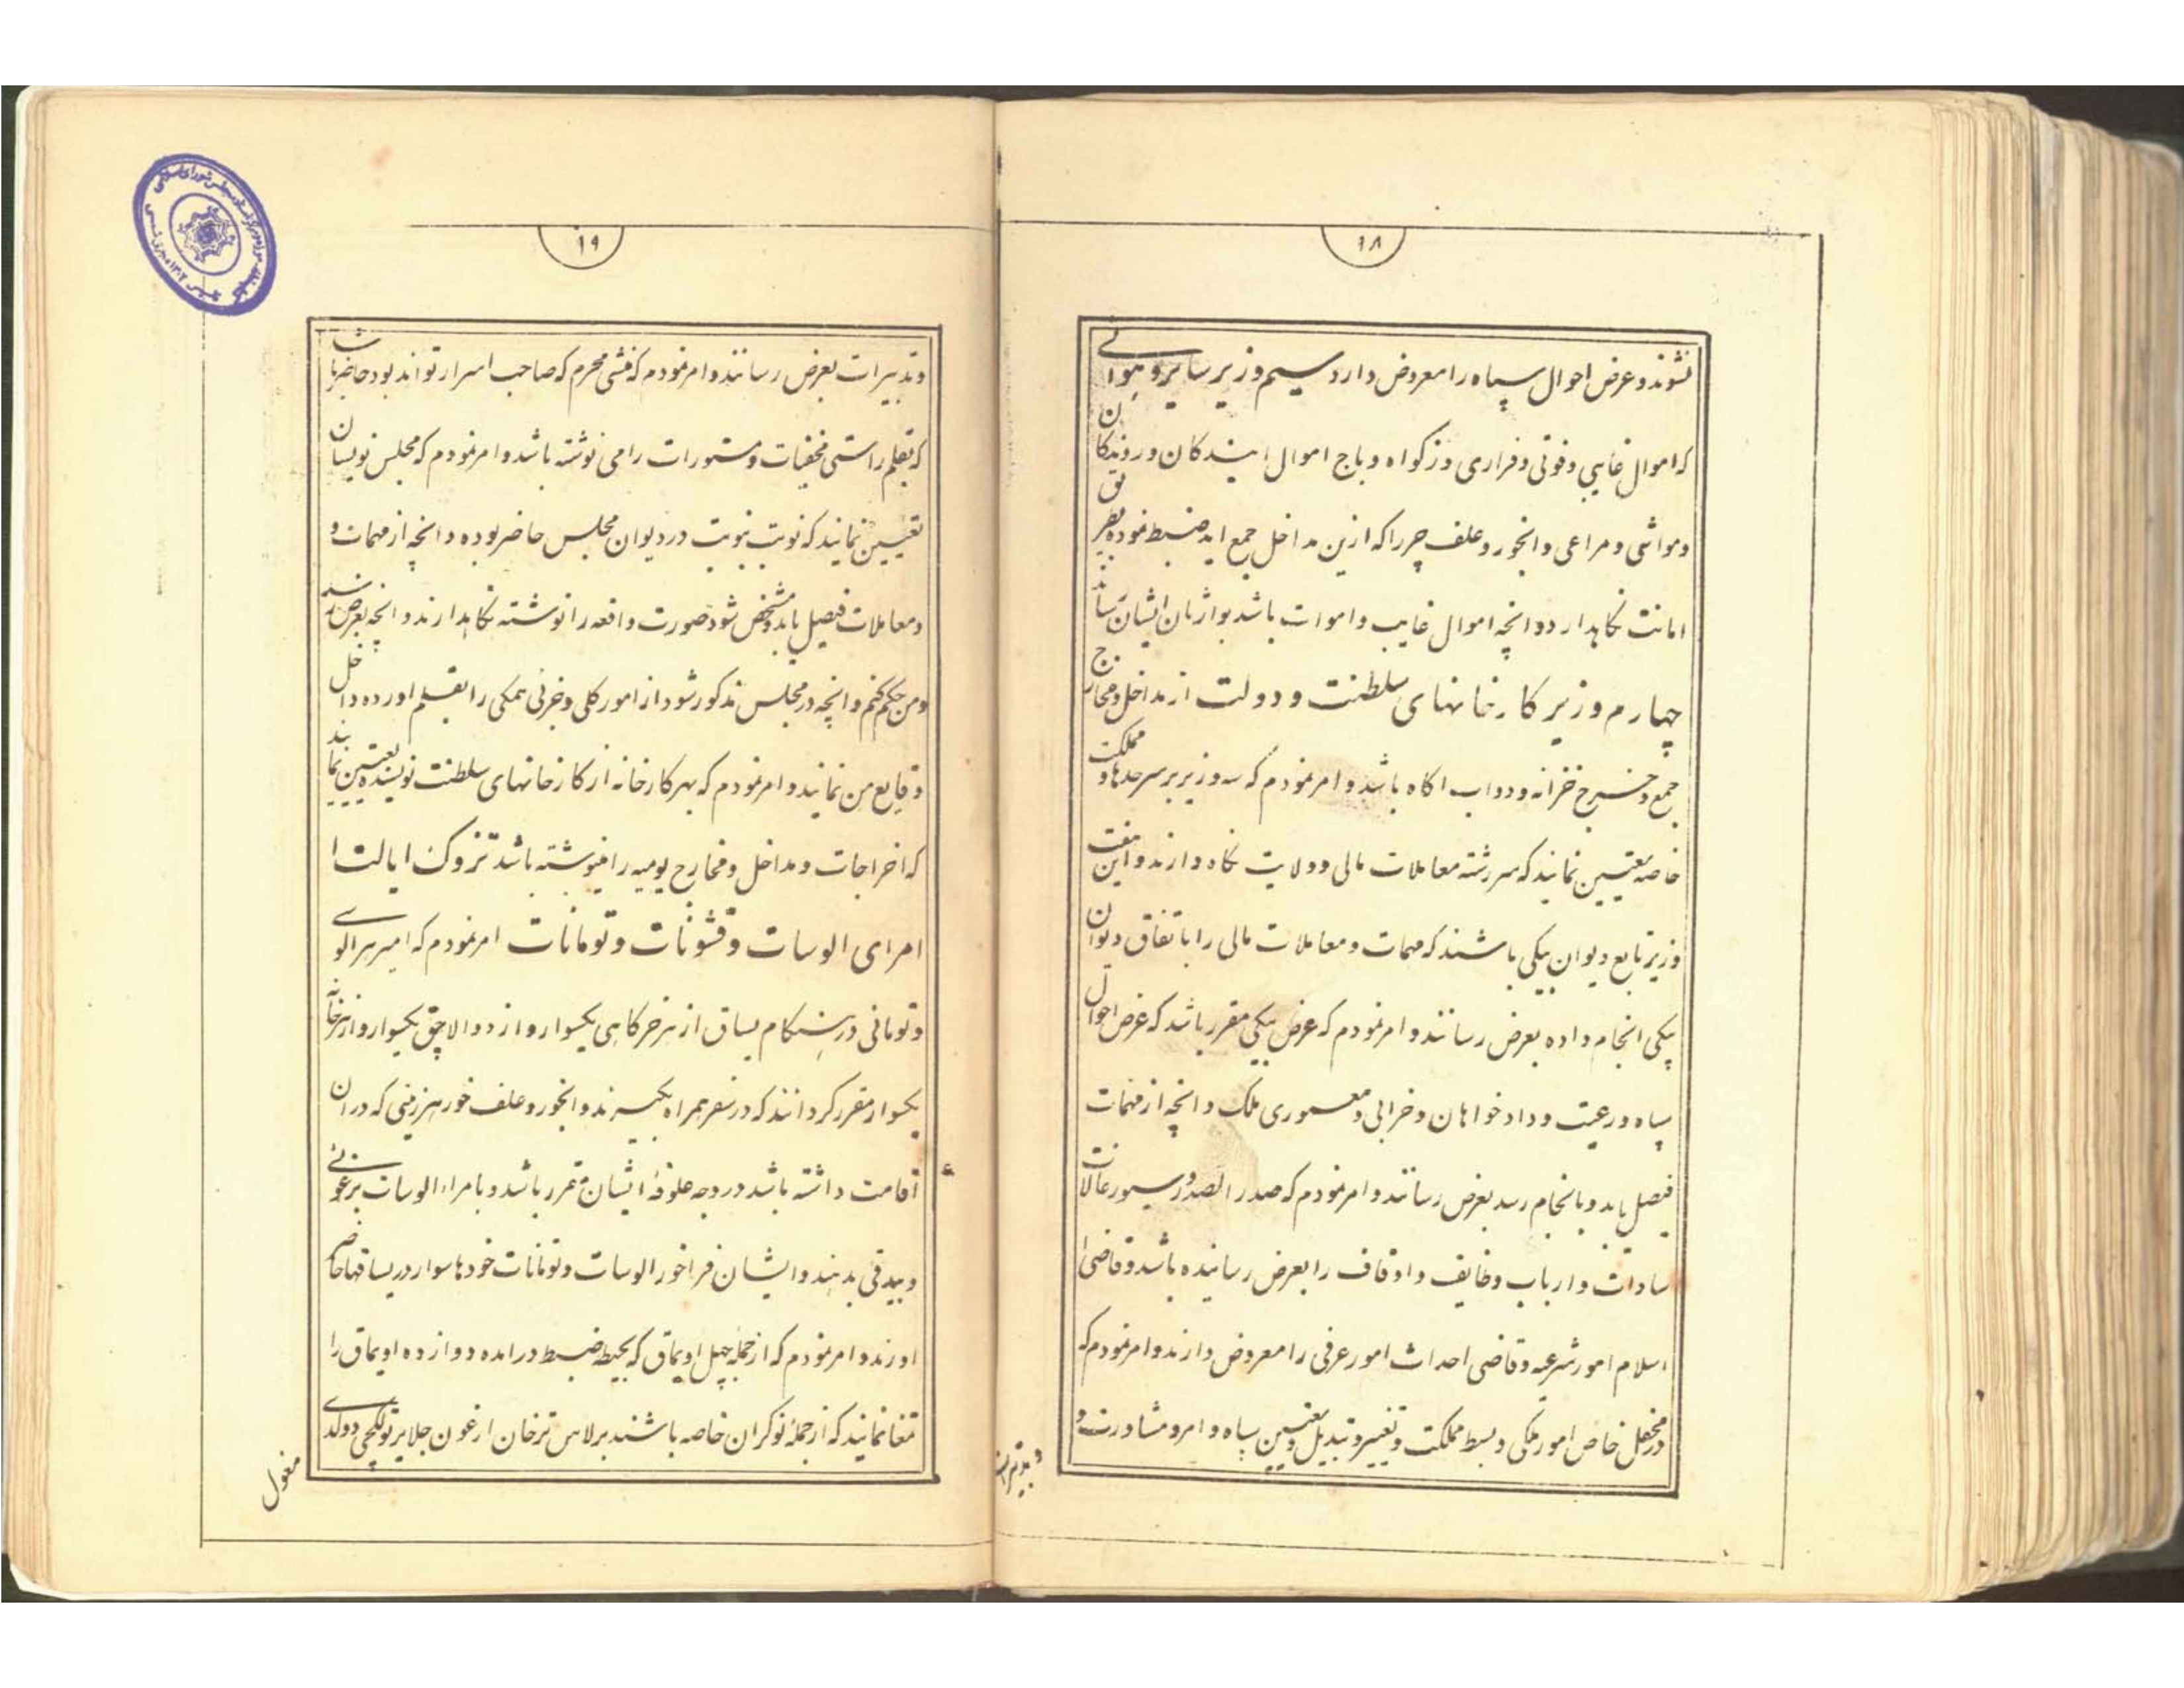 ۱۸
نشوند و عرض احوال سپاه را معروض دارد سیم وزیر سایر و هوائی
که اموال غایبی و فوتی و فراری و زکواه و باج اموال ایندکان و روندکان
و مواشی و مراعی و انجور و علف چر را که ازین مداخل جمع اید ضبط نموده بطریق
امانت نکاهدارد و انچه اموال غایب و اموات باشد بوارثان ایشان رساند
چهارم وزیر کارخانهای سلطنت و دولت از مداخل و مخارج
جمع و خرج خزانه و دواب اکاه باشد و امر نمودم که سه وزیر بر سرحدها و مملکت
خاصه تعیین نمایند که سررشته معاملات مالی و ولایت نکاه دارند و این هفت
وزیر تابع دیوان بیکی باشند که مهمات و معاملات مالی را باتفاق دیوان
بیکی انجام داده بعرض رسانند و امر نمودم که عرض بیکی مقرر باشد که عرض احوال
سپاه و رعیت و دادخواهان و خرابی و معموری ملک و انچه از مهمات
فیصل یابد و بانجام رسد بعرض رسانند و امر نمودم که صدر الصدور سیورغالات
سادات و ارباب وظایف و اوقاف را بعرض رسانیده باشد و قاضی
اسلام امور شرعیه و قاضی احداث امور عرفی را معروض دارند و امر نمودم که
در محفل خاص امور ملکی و بسط مملکت و تغییر و تبدیل و تعیین سپاه و امر و مشاورت و
و تدبیرات
۱۹
و تدبیرات بعرض رسانند و امر نمودم که منشی محرم که صاحب اسرار تواند بود حاضر باشد
که بقلم راستی مخفیات و مستورات را می نوشته باشد و امر نمودم که مجلس نویسان
تعیین نمایند که نوبت بنوبت در دیوان مجلس حاضر بوده و انچه از مهمات و
و معاملات فیصل یابد و مشخص شود صورت واقعه را نوشته نکاهدارند و انچه بعرض رسد
و من حکم کنم و انچه در مجلس مذکور شود از امور کلی و جزئی همکی را بقلم اورده داخل
وقایع من نمایند و امر نمودم که بهر کارخانه از کارخانهای سلطنت نویسنده تعیین نمایند
که اخراجات و مداخل و مخارج یومیه را مینوشته باشد تزوک ایالت
امرای الوسات و قشونات و تومانات امر نمودم که امیر هر الوسی
و تومانی در هنکام یساق از هر خرکاهی یکسوار و از دو الاچق یکسوار و از هر خانه
یکسوار مقرر کردانند که در سفر همراه بکیرند و انخور و علف خور هر زمینی که در ان
اقامت داشته باشد در وجه علوفهٔ ایشان مقرر باشد و بامراء الوسات برغوئی
و بیدقی بدهند و ایشان فراخور الوسات و تومانات خودها سوار در یساقها حاضر
اورند و امر نمودم که از جمله چهل اویماق که بحیطه ضبط درامده دوازده اویماق را
تمغا نمایند که از جملهٔ نوکران خاصه باشند برلاس ترخان ارغون جلایر تولکچی دولدی
مغول